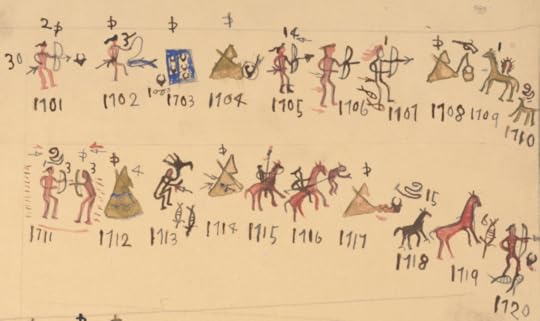 2
30
3
14
1
1
1701 1702 1000 1703 1704 1705 1706 1707 1708 1709 1710
3 3 4
15
6
1711 1712 1713 1714 1715 1716 1717 1718 1719 1720